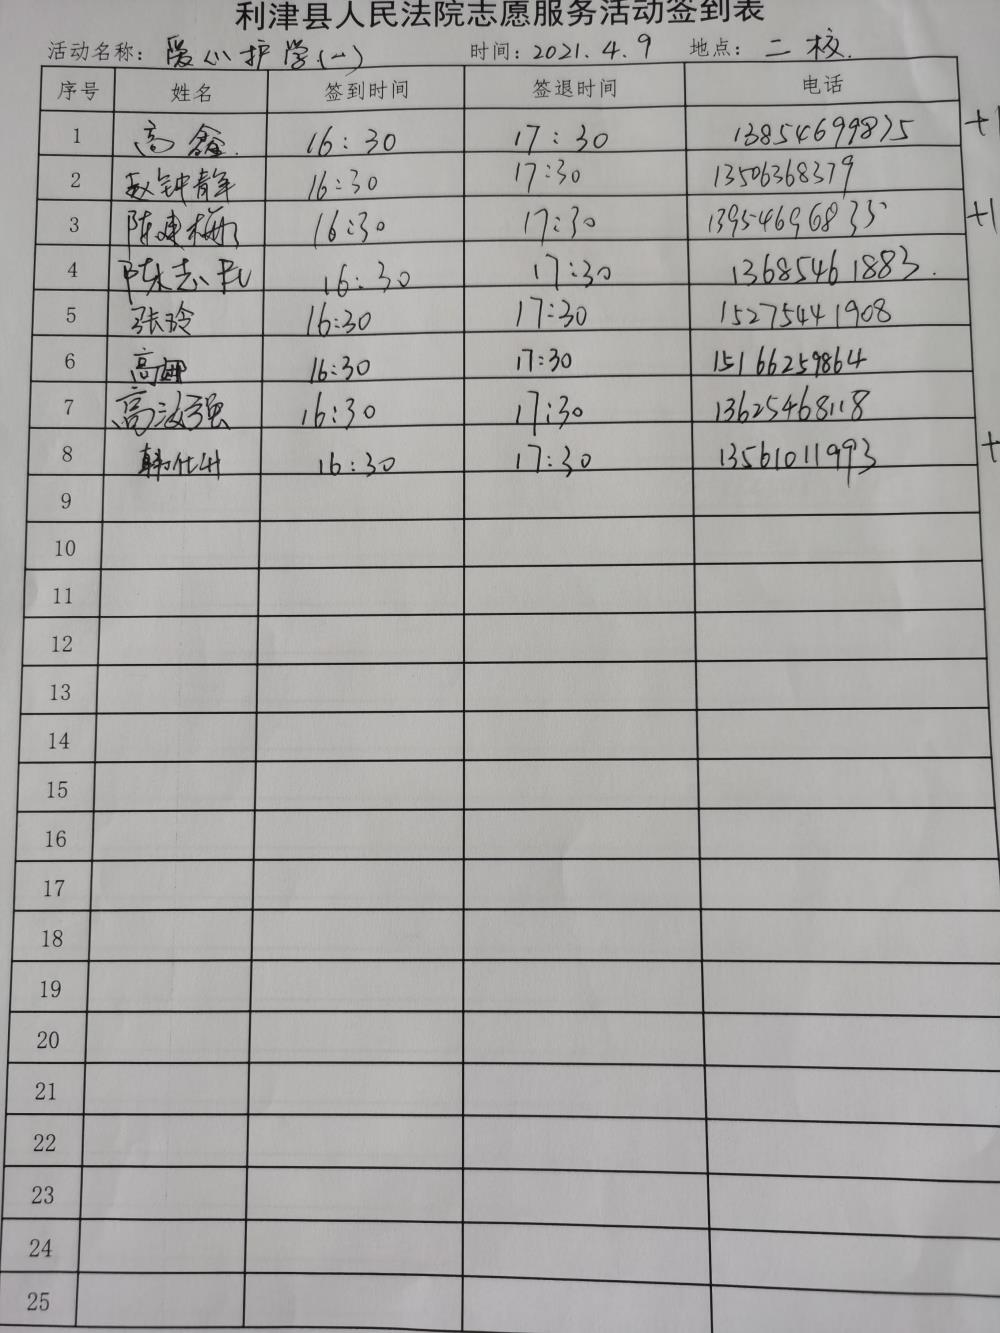 利津县人民法院志愿服务活动签到表
活动名称: 爱心护学(一) 时间: 2021.4.9 地点: 二校.
序号 姓名 签到时间 签退时间 电话
1 高鑫. 16:30 17:30 13854699875 +1
2 赵钟静 16:30 17:30 13506368379
3 陈建梅 16:30 17:30 +1
4 陈志 16:30 17:30 13685461883.
5 张玲 16:30 17:30 15275441908
6 高娜 16:30 17:30 15166259864
7 高汝强 16:30 17:30 13625468118
8 韩仕 16:30 17:30 13561011993 +
9
10
11
12
13
14
15
16
17
18
19
20
21
22
23
24
25